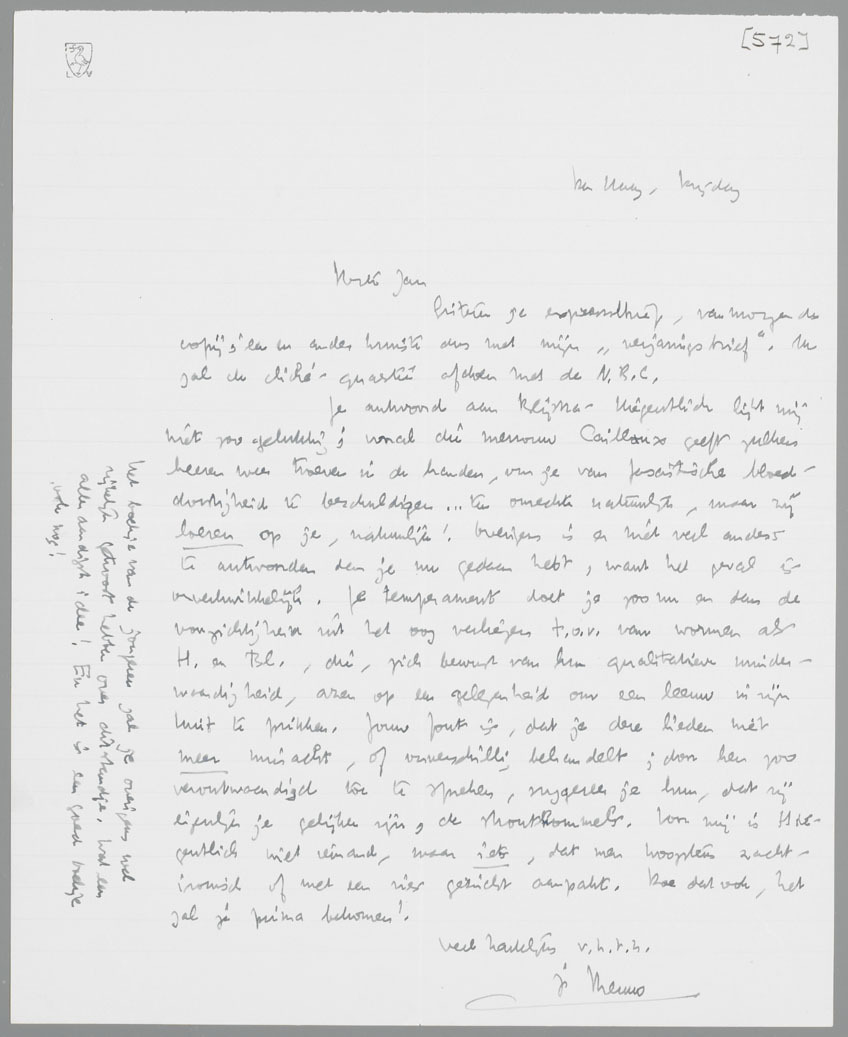 [572]
Den Haag, Vrijdag
Beste Jan
Gisteren je expressebrief, vanmorgen de
copij; een en ander kruiste dus met mijn „verjaringsbrief". Ik
zal de cliché-quaestie afdoen met de N.R.C.
Je antwoord aan Kelk lijkt mij
niet zoo gelukkig; vooral die mevrouw Caillaux geeft zulke
heeren weer troeven in de handen, om je van fascistische bloed-
dorstigheid te beschuldigen... ten onrechte natuurlijk, maar zij
loeren op je, natuurlijk! Overigens is er niet veel anders
te antwoorden dan je nu gedaan hebt, want het geval is
onverkwikkelijk. Je temperament doet je zoo nu en dan de
voorzichtigheid uit het oog verliezen t.o.v. van wormen als
H. en Bl., die, zich bewust van hun qualitatieve minder-
waardigheid, azen op een gelegenheid om een leeuw in zijn
kuit te prikken. Jouw fout is, dat je deze lieden niet
meer minacht, of onverschillig behandelt; door hen zoo
verontwaardigd toe te spreken, suggereer je hun, dat zij
eigenlijk je gelijken zijn, de stronthommels. Voor mij is
niet iemand, maar iets, dat men hoogstens zacht-
ironisch of met een vies gezicht aanpakt. Doe dat ook, het
zal je prima bekomen!
veel hartelijks v.h.t.h.
je Menno
Het boekje van de jongeren zal je overigens wel
rijkelijk gestoord hebben over. Wat een
allerellendigst idee! En het is een goed boekje
ook nog!